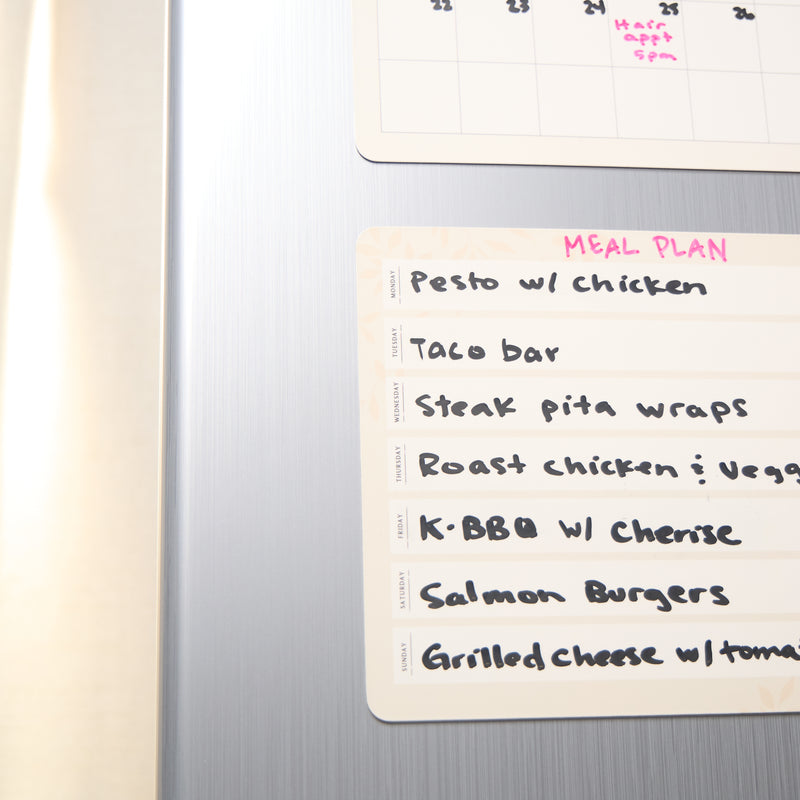 22 23 24 25 26
Hair
appt
5pm
MEAL PLAN
MONDAY Pesto w/ chicken
TUESDAY Taco bar
WEDNESDAY Steak pita wraps
THURSDAY Roast chicken & Vegg
FRIDAY K-BBQ w/ Cherise
SATURDAY Salmon Burgers
SUNDAY Grilled cheese w/ toma